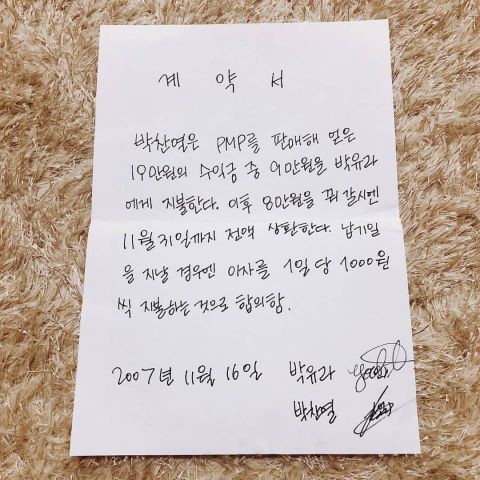 계 약 서
박찬열은 PMP를 판매해 얻은
19만원의 수익금 중 9만원을 박유라
에게 지불한다. 이후 8만원을 꿔 갈시엔
11월 31일까지 전액 상환한다. 납기일
을 지날 경우엔 이자를 1일 당 1000원
씩 지불하는 것으로 합의함.
2007년 11월 16일 박유라
박찬열